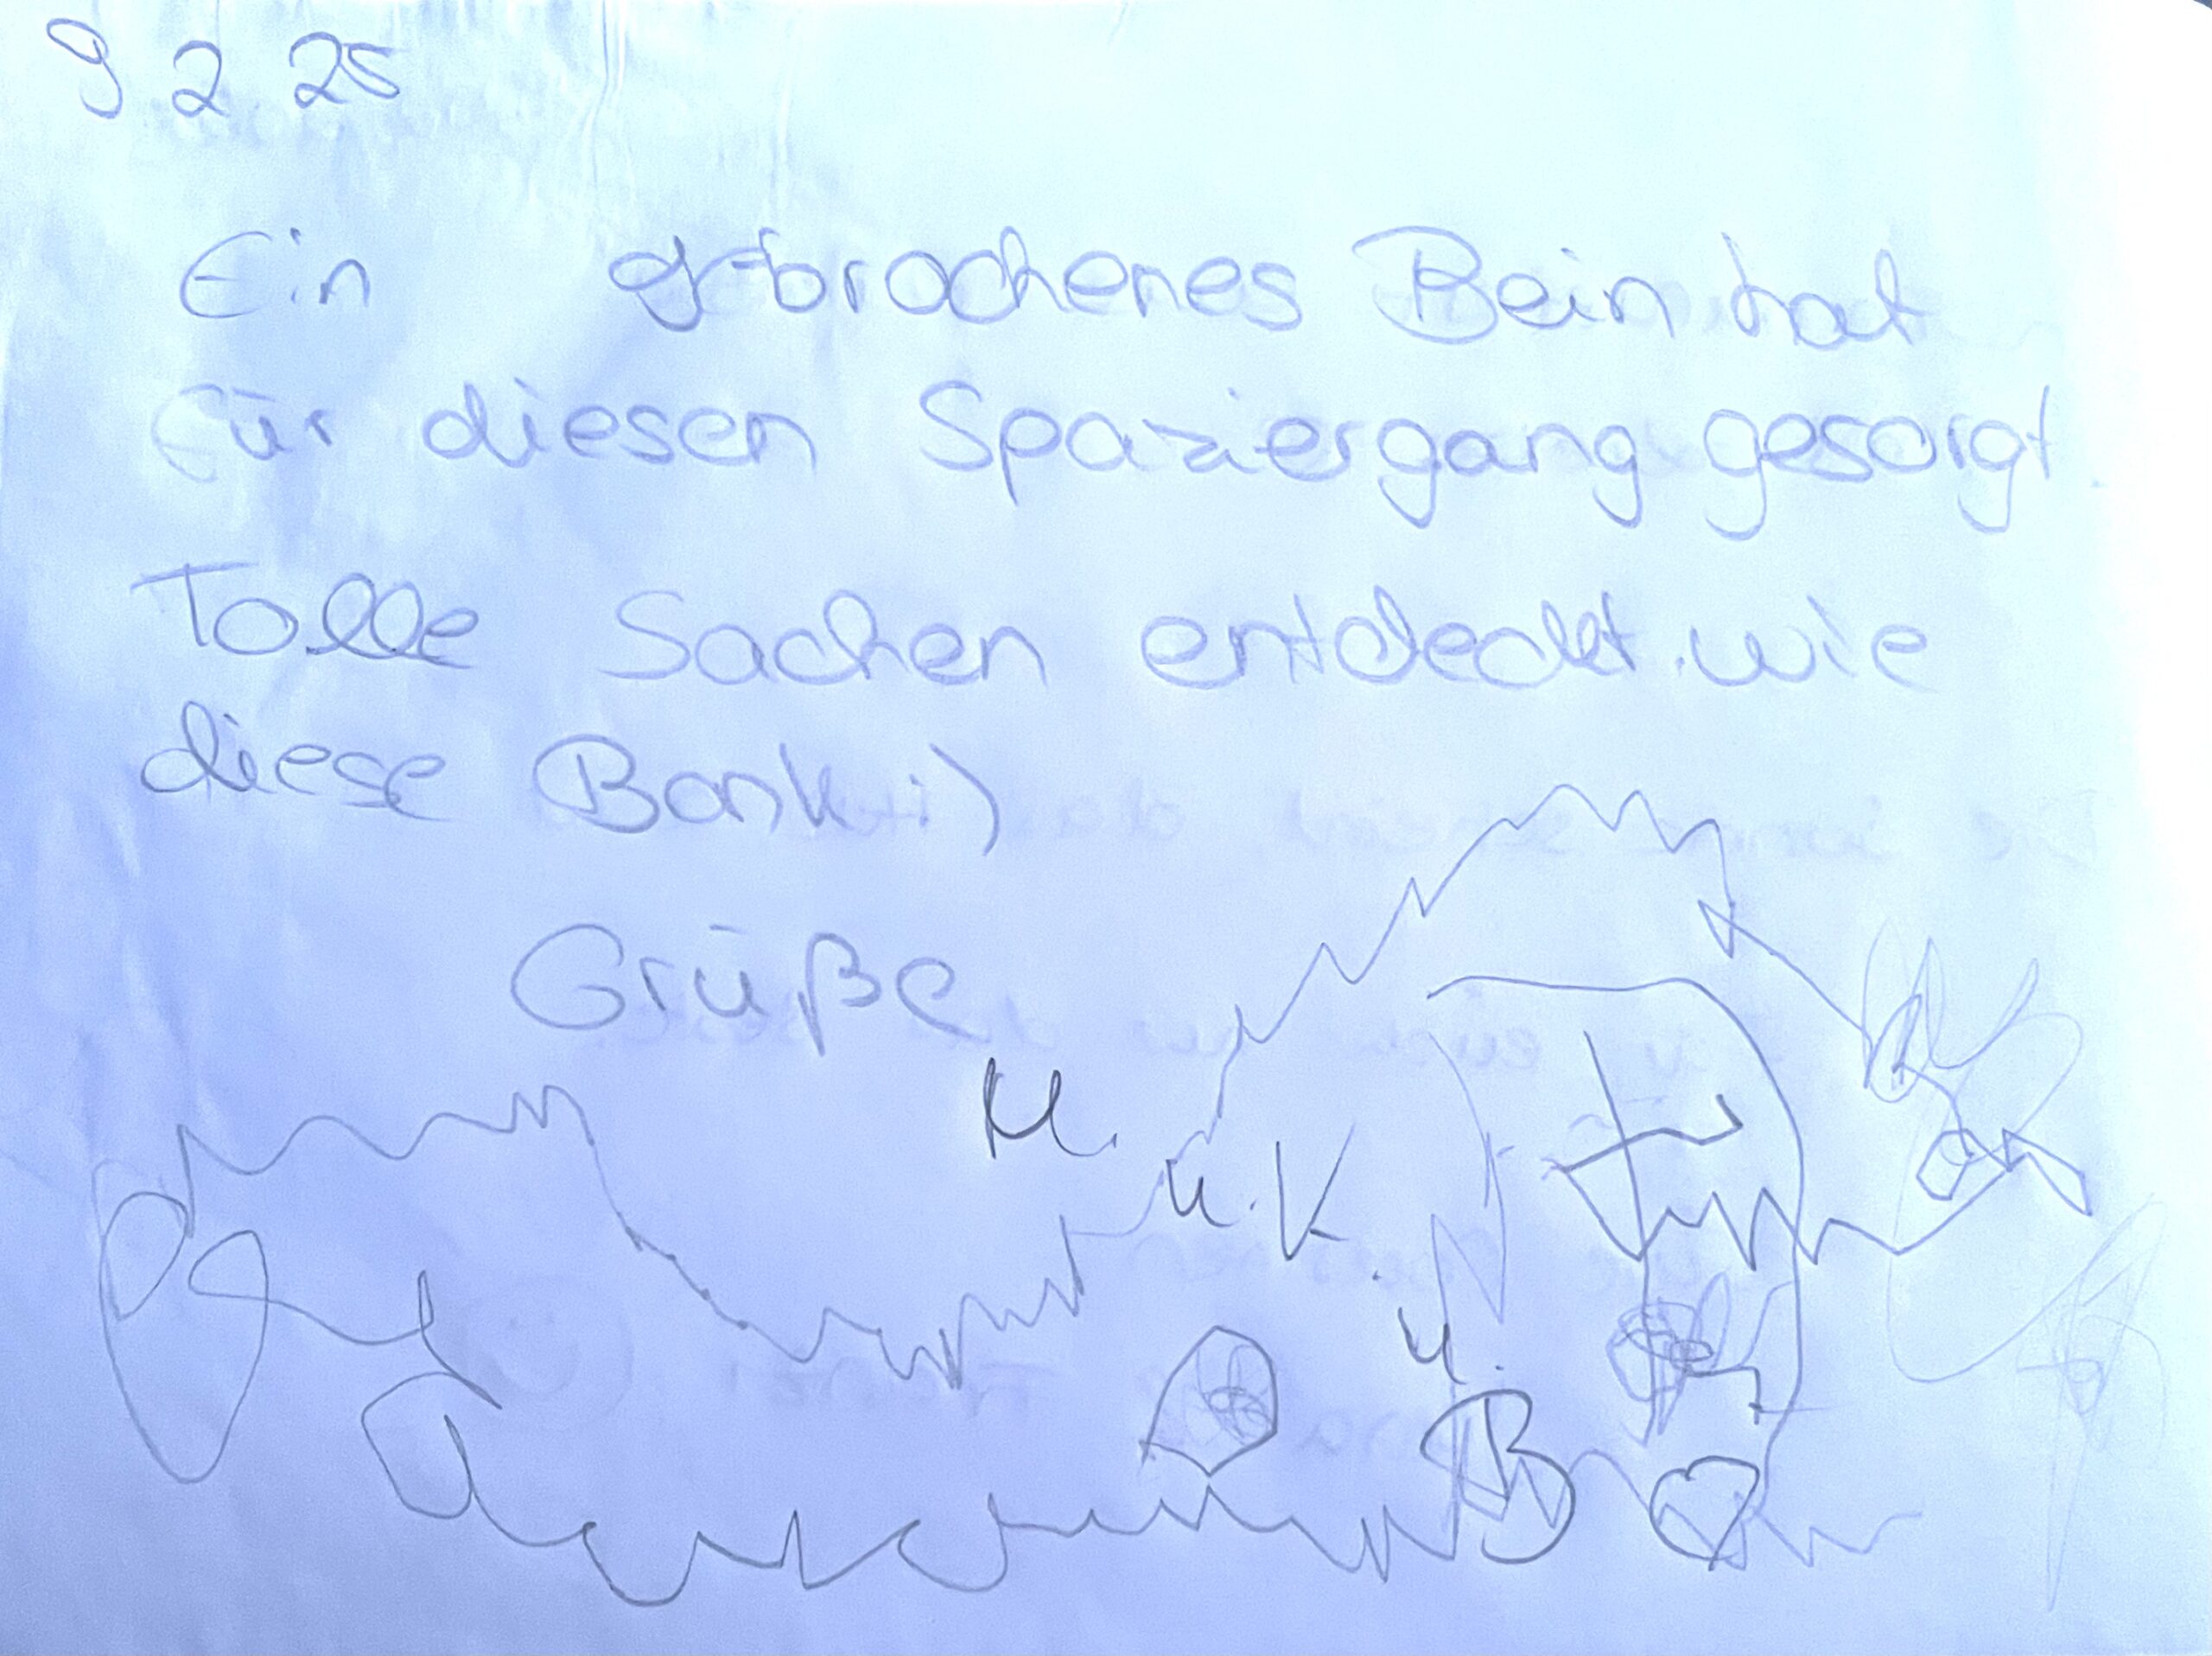 9 2 25
Ein gebrochenes Bein hat
für diesen Spaziergang gesorgt.
Tolle Sachen entdeckt. wie
diese Bank :)
Grüße
M.
u. K.
u.
B